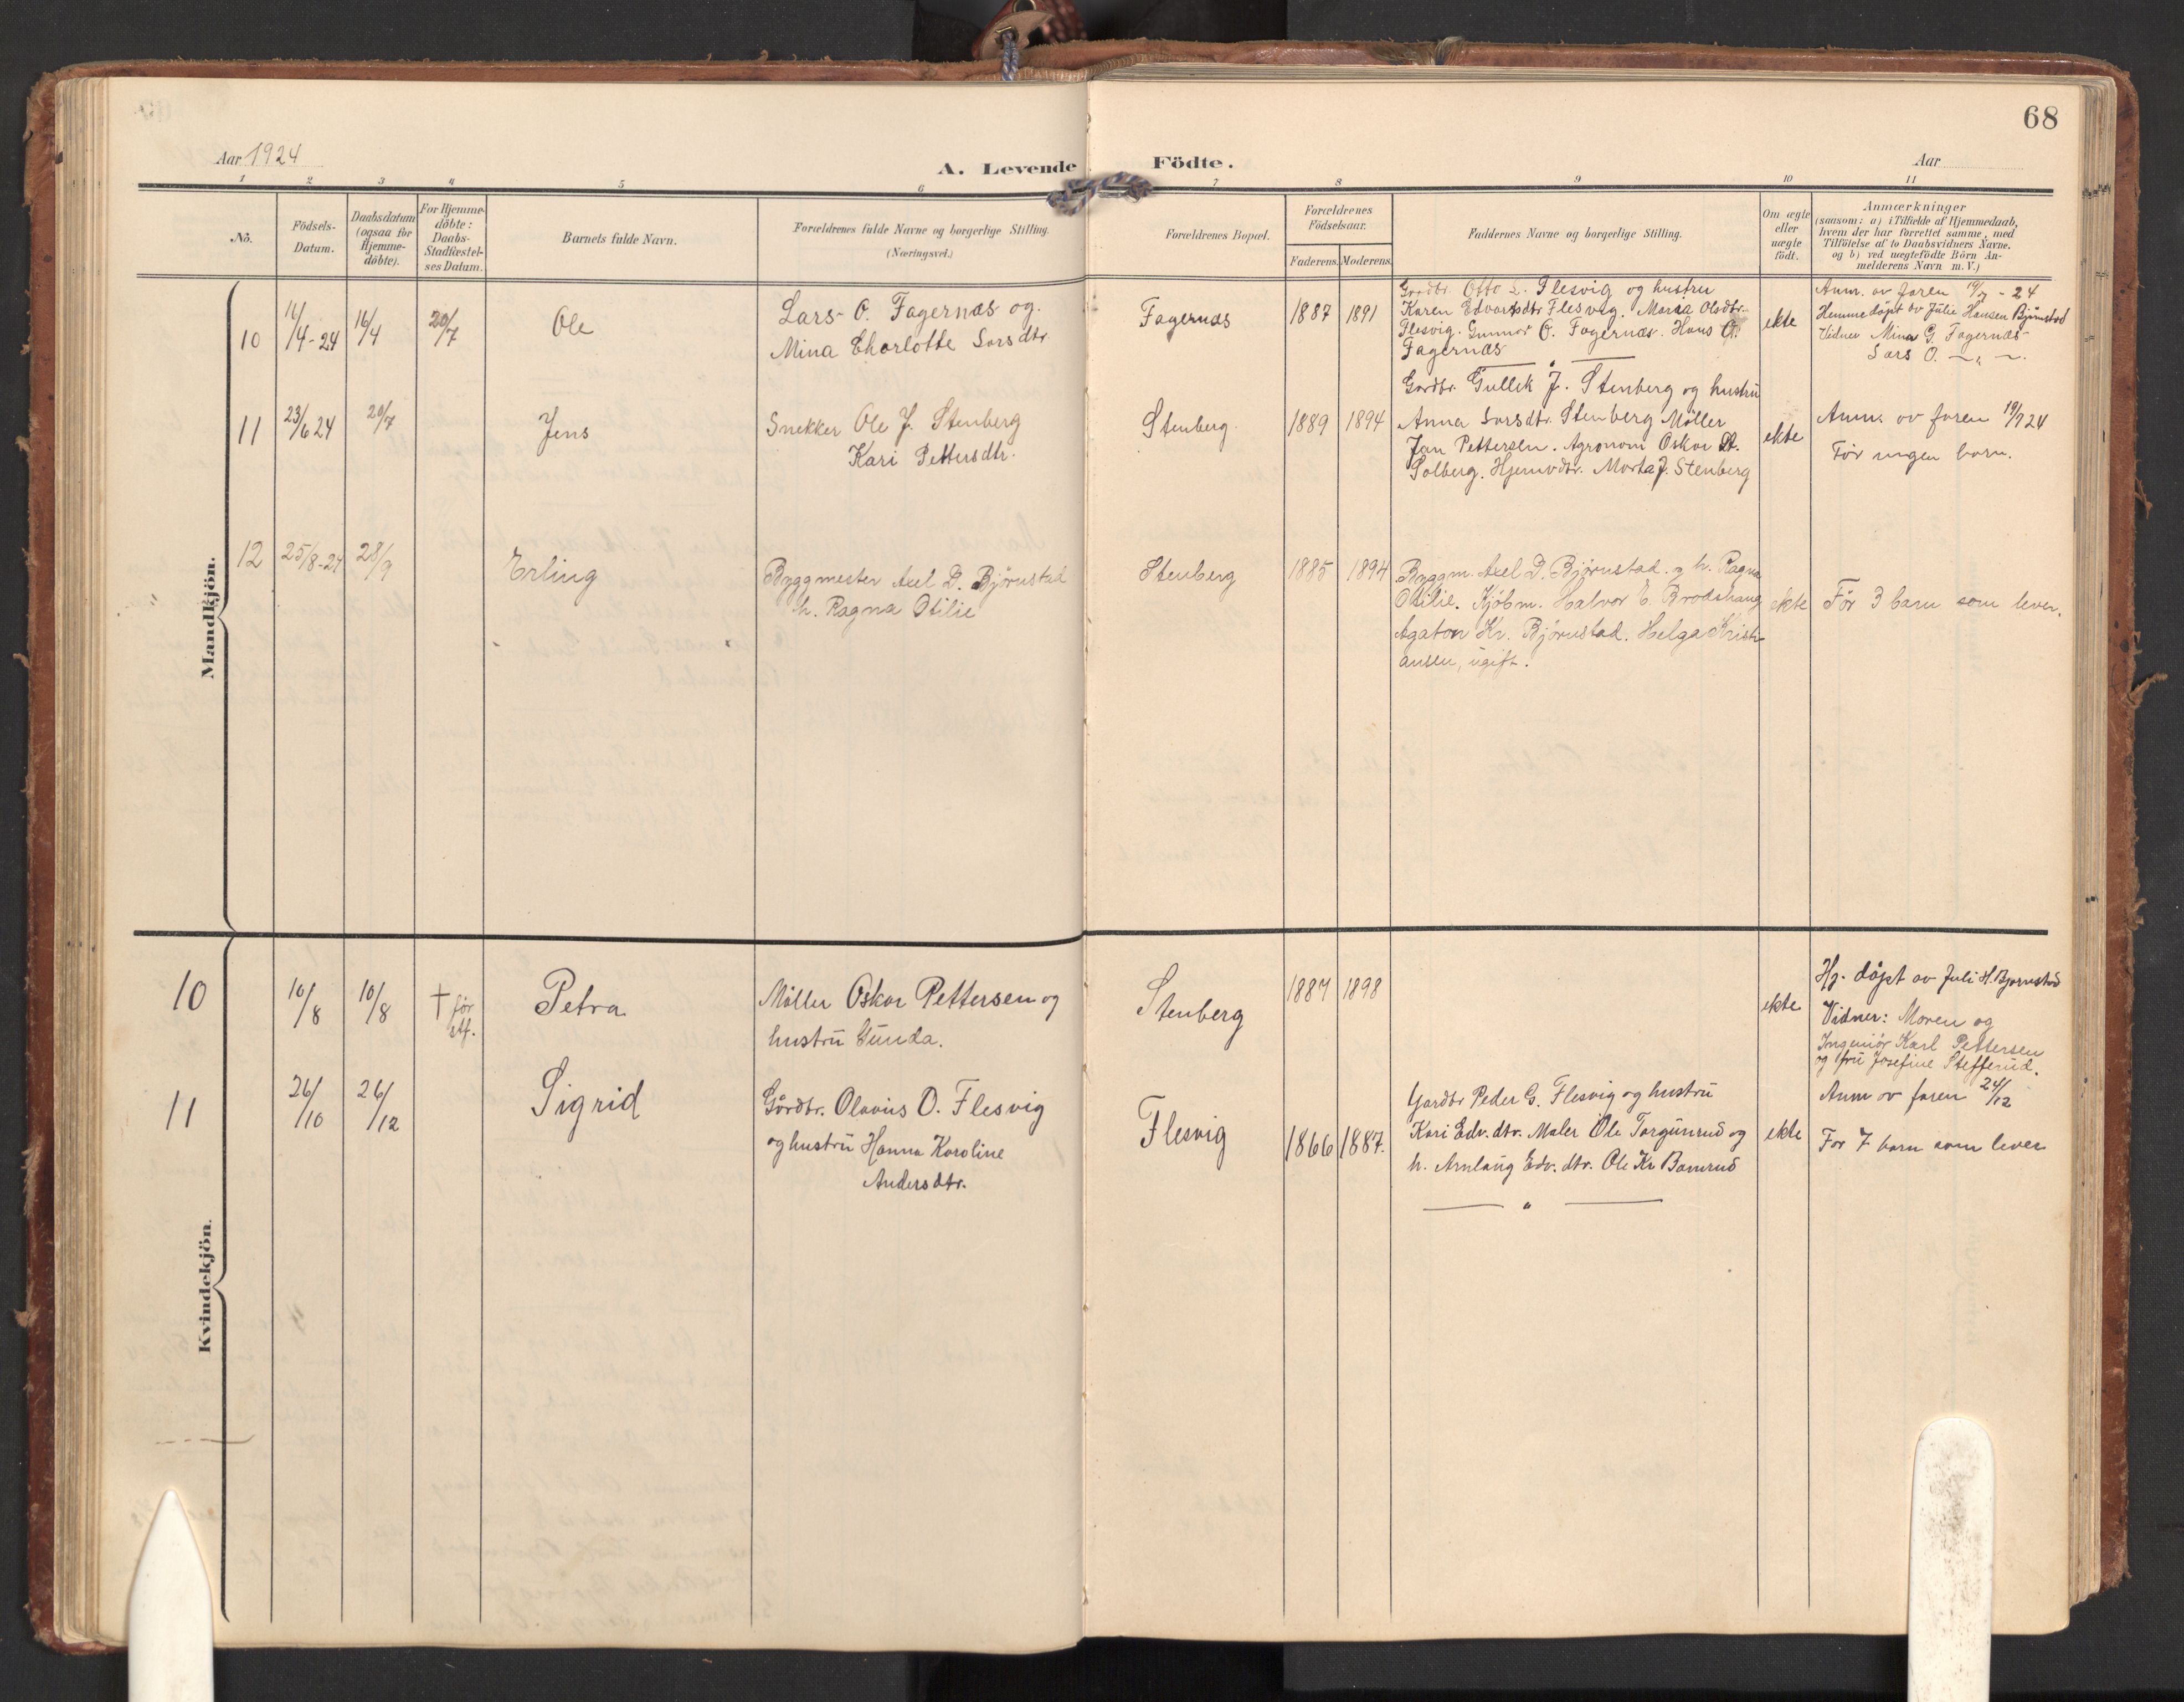 68
Aar 1924
A. Levende Födte.
Aar
1 2 3 4 5 6 7 8 9 10 11
No.
Födsels-
Datum.
Daabsdatum
(ogsaa for
Hjemme-
döbte).
For Hjemme-
döbte:
Daabs-
Stadfæstel-
ses Datum.
Barnets fulde Navn.
Forældrenes fulde Navne og borgerlige Stilling.
(Næringsvei.)
Forældrenes Bopæl.
Forældrenes
Födselsaar.
Faderens. Moderens.
Faddernes Navne og borgerlige Stilling.
Om ægte
eller
uægte
födt.
Anmærkninger
(saasom: a) i Tilfælde af Hjemmedaab,
hvem der har forrettet samme, med
Tilföielse af to Daabsvidners Navne.
og b) ved uægtefödte Börn An-
melderens Navn m. V.)
Mandkjön.
10
/4-24
16/4
20/7
Ole
Lars O. Fagernæs og
Mina Charlotte Larsdtr.
Fagernæs
1887 1891
Gardbr. Otto L. Flesvig og hustru
Karen Edvardsdtr Flesvig. Maria Olsdtr.
Flesvig. Gunnar O. Fagernæs. Hans O.
Fagernæs
ekte
Anm. av faren 19/7 - 24
Hemmedöpt av Julie Hansen Björnstad
Vidner Mina G. Fagernæs
Lars O. — " —.
11
23/6 24
20/7
Jens
Snekker Ole J. Stenberg
Kari Pettersdtr.
Stenberg.
1889 1894
Gardbr. Gullik J. Stenberg og hustru
Anna Larsdtr. Stenberg Möller
Jan Pettersen. Agronom Oskar
Solberg. Hjemvdtr. Marta J. Stenberg
ekte
Anm. av faren 19/7 24
För ingen barn.
12
25/8-24
28/9
Erling
Byggmester Axel D. Björnstad
h. Ragna Otilie
Stenberg
1885 1894
Byggm. Axel D. Björnstad. g h. Ragna
Otilie. Kjöbm. Halvor E. Brodshaug
Agaton Kr. Björnstad. Helga Kristi-
ansen, ugift.
ekte
För 3 barn som lever.
Kvindekjön.
10
10/8
10/8
† för
stf.
Petra
Möller Oskar Pettersen og
hustru Gunda.
Stenberg
1887 1898
ekte
Hj. döpt av Juli H. Bjørnstad
Vidner: Moren og
Ingeniör Karl Pettersen
og fru Josefine Stefferud.
11
26/10
26/12
Sigrid
Gårdbr. Olavus O. Flesvig
og hustru Hanna Karoline
Andersdtr.
Flesvig
1866 1887.
Gardbr Peder G. Flesvig og hustru
Kari Edv. dtr. Maler Ole Torgunrud og
h. Arnlaug Edv. dtr. Ole Kr Bamrud
— " —
ekte
Anm av faren 24/12
For 7 barn som lever